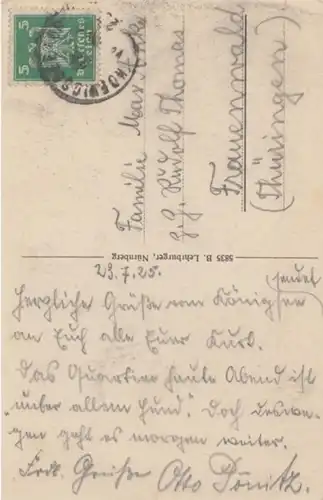 5 5
Deutsches
Reich
KOENIGS
Familie Max
z. H. Rudolf Thomas
Frauenwald
(Thüringen)
5835 B. Lehrburger, Nürnberg
23.7.25.
sendet
Herzliche Grüße vom Königssee
an Euch alle Euer Kurt.
Das Quartier heute Abend ist
"unter allem Hund". Doch deswe-
gen geht es morgen weiter.
Grüße Otto Dönitz.